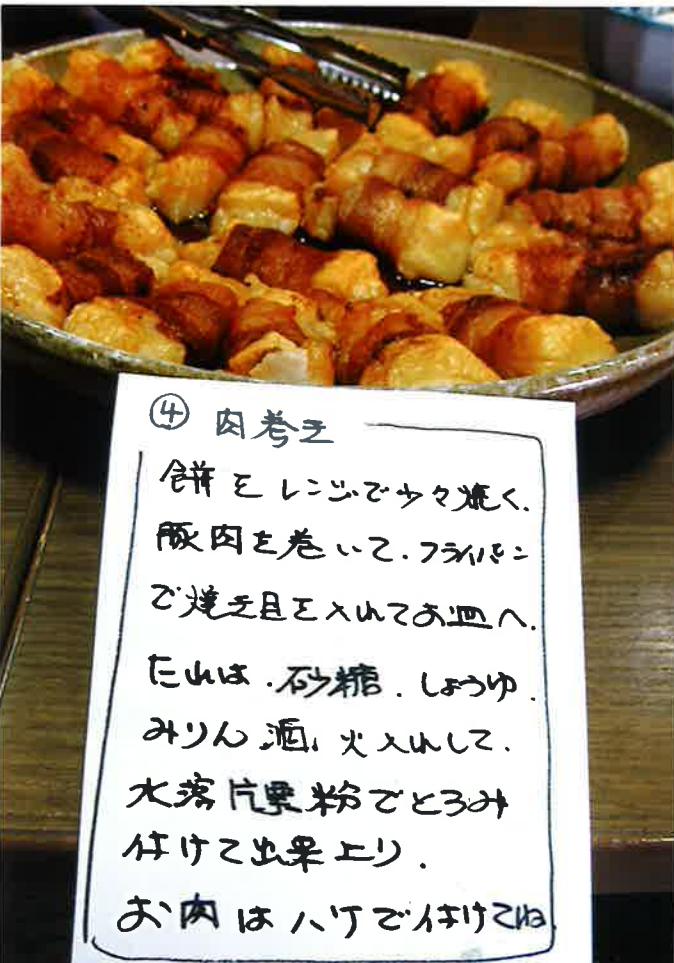 ④ 肉巻き
餅をレンジで少々焼く.
豚肉を巻いて.フライパン
で焼き目を入れてお皿へ.
たれは.砂糖.しょうゆ.
みりん.酒、火入れして.
水落片栗粉でとろみ
付けて出来上り.
お肉はハケで付けてね